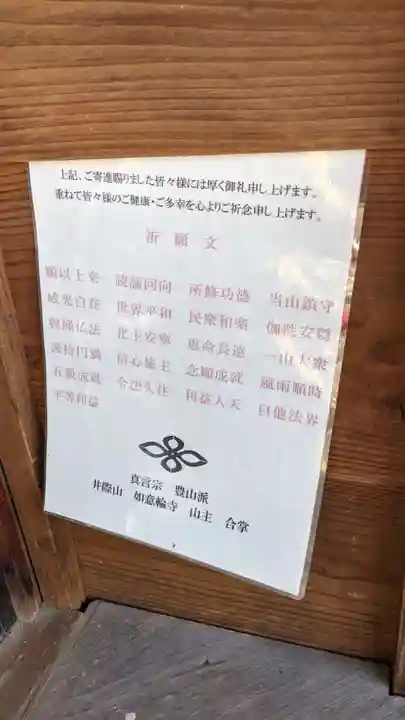 上記、ご寄進賜りました皆々様には厚く御礼申し上げます。
重ねて皆々様のご健康・ご多幸を心よりご祈念申し上げます。
祈願文
願以上来 読誦回向 所修功徳 当山鎮守
威光自在 世界平和 民衆和楽 伽藍安穏
興隆仏法 仏土安寧 恵命長遠 一山大衆
護持円満 信心施主 念願成就 風雨順時
五穀成就 令法久住 利益人天 自他法界
平等利益
真言宗 豊山派
井際山 如意輪寺 山主 合掌